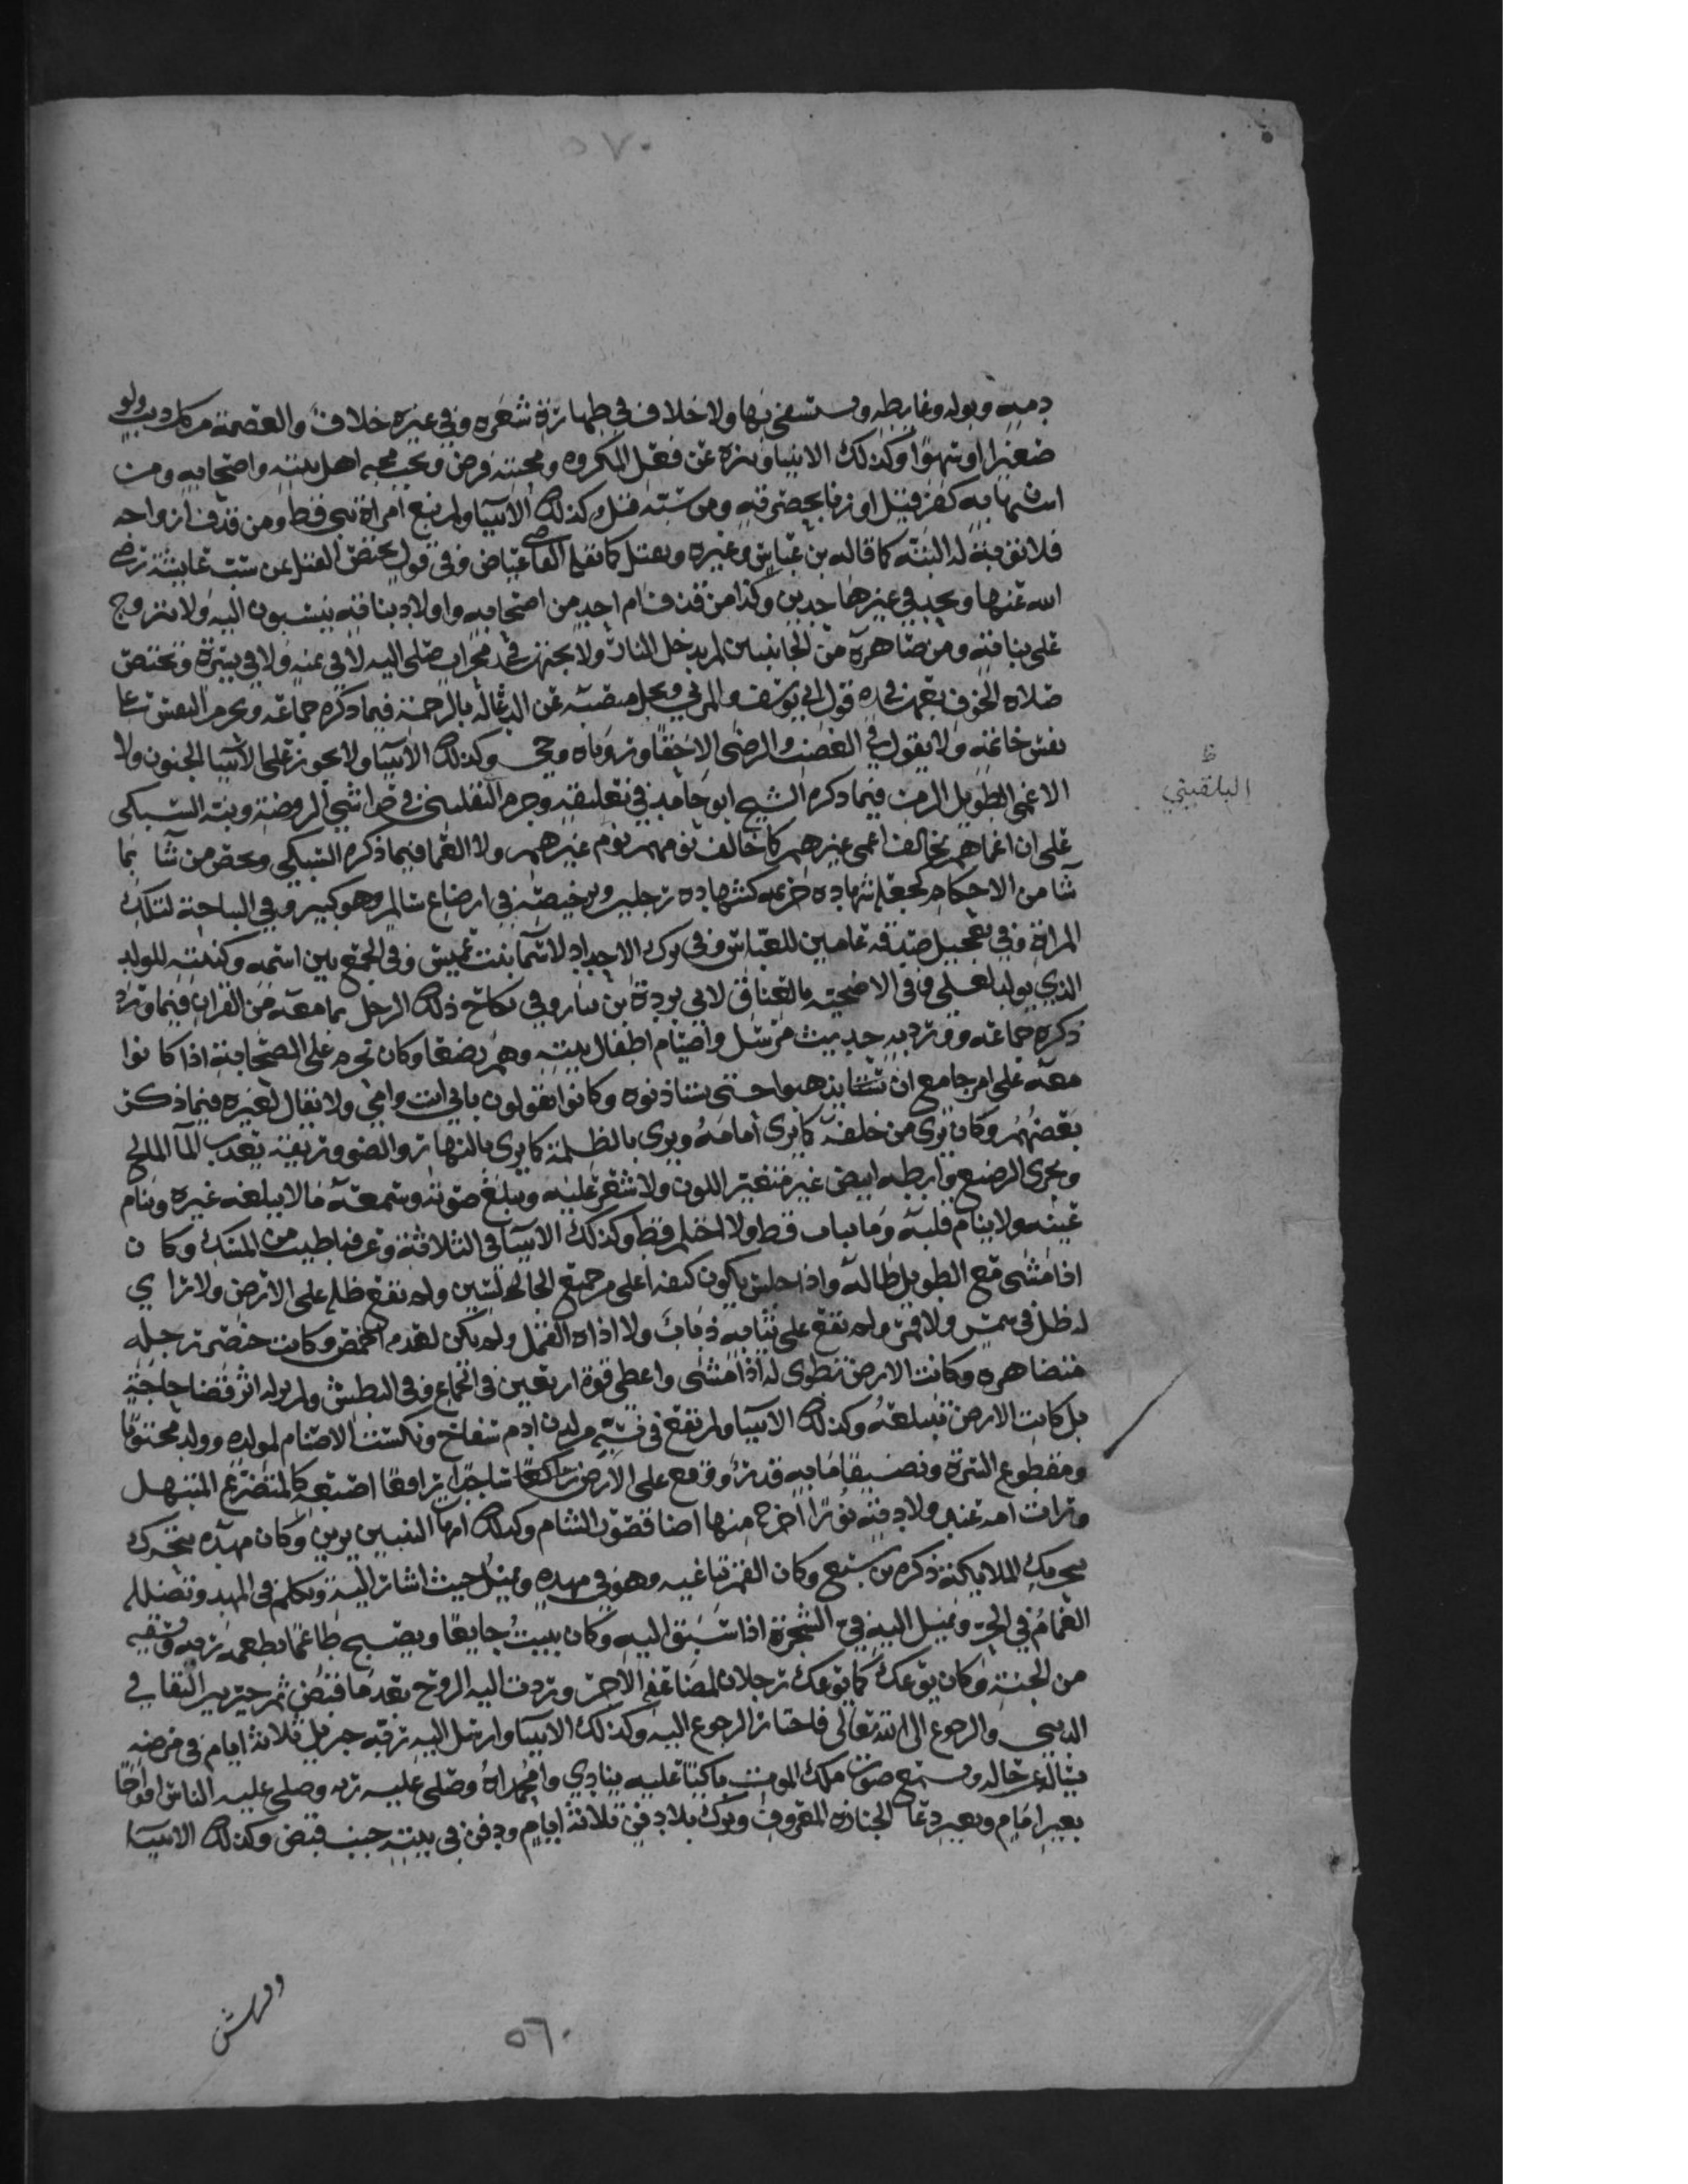 ٥٧٠
دمه وبوله وغايطه ويستشفى بها ولا خلاف في طهارة شعره وفي غيره خلاف والعصمة من كل ذنب ولو
صغيرا او سهوا وكذلك الانبيا ومنزه عن فعل المكروه ومحبته فرض ويجب محبة اهل بيته واصحابه ومن
استهان به كفر فيقتل او زنا بحضرته ومن سبه قتل وكذلك الانبيا ولم تبغ امراة نبي قط ومن قذف ازواجه
فلا توبة له البتة كما قاله بن عباس وغيره ويقتل كما نقله القاضي عياض وفي قول يختص القتل بمن سب عايشة رضي
الله عنها ويحد في غيرها حدين وكذا من قذف ام احد من اصحابه واولاد بناته ينسبون اليه ولا يتزوج
على بناته ومن صاهره من الجانبين لم يدخل النار ولا يجتهد في محراب صلى اليه لا في يمنه ولا في يسره ويختص
صلاة الخوف بعهده في قول ابي يوسف والمزني ويجل منصبه عن الدعا له بالرحمة فيما ذكره جماعة ويحرم النقش على
نقش خاتمه ولا يقول في الغضب والرضى الا حقا ورؤياه وحي وكذلك الانبيا ولا يجوز على الانبيا الجنون ولا
الاغمى الطويل الزمن فيما ذكره الشيخ ابو حامد في تعليقه وجزم به البلقيني في حواشي الروضة ونبه السبكي
على ان اغماهم يخالف اغمى غيرهم كما خالف نومهم نوم غيرهم ولا العما فيما ذكره السبكي ويخص من شا بما
شا من الاحكام كجعله شهادة خزيمه كشهادة رجلين وترخيصه في ارضاع سالم وهو كبير وفي النياحة لتلك
المراة وفي تعجيل صدقة عامين للعباس وفي ترك الاحداد لاسما بنت عميس وفي الجمع بين اسمه وكنيته للولد
الذي يولد لعلي وفي الاضحية بالعناق لابي بردة ابن نيار وفي نكاح ذلك الرجل بما معه من القران فيما
ذكره جماعة وورد به حديث مرسل واصيام اطفال بيته وهم رضعا وكان تحرم على الصحابة اذا كانوا
معه على امر جامع ان يذهبوا حتى يستاذنوه وكانوا يقولون بابي انت وامي ولا يقال لغيره فيما ذكر
بعضهم وكان يرى من خلفه كما يرى امامه ويرى بالظلمة كما يرى بالنهار والضو وريقه يعذب الما المالح
ويجزى الرضيع وابطه ابيض غير متغير اللون ولا شعر عليه ويبلغ صوته وسمعه ما لا يبلغه غيره وتنام
عينه ولا ينام قلبه وما تثاب قط ولا احتلم قط وكذلك الانبيا في الثلاثة وعرقه اطيب من المسك وكان
اذا مشى مع الطويل طاله واذا جلس يكون كتفه اعلى من جميع الجالسين ولم تقع ظله على الارض ولا تراي
له ظل في شمس ولا قمر ولم تقع على ثيابه ذباب ولا اذاه القمل ولم يكن لقدمه اخمص وكانت خنصر رجله
متضاهرة وكانت الارض تطوى له اذا مشى واعطي قوة اربعين في الجماع وفي البطش ولم ير له اثر قضا حاجة
بل كانت الارض تبتلعه وكذلك الانبيا ولم تقع في نسبه من لدن ادم سفاح ونكست الاصنام لمولده وولد مختونا
ومقطوع السرة ونضيفا ما به قذر ووقع على الارض ساجدا رافعا اصبعه كالمتضرع المبتهل
ورات امه عند ولادته نورا خرج منها اضا قصور الشام وكذلك امهات النبيين يرين وكان مهده يتحرك
بتحريك الملايكة ذكره بن سبع وكان القمر يناغيه وهو في مهده ويميل حيث اشار اليه وتكلم في المهد وتضلله
الغمام في الحر ويميل اليه في الشجرة اذا سبق اليه وكان يبيت جايعا ويصبح طاعما يطعمه ربه ويسقيه
من الجنة وكان يوعك كما يوعك رجلان لمضاعفة الاجر وردت اليه الروح بعد ما قبض ثم خير بين البقا في
الدنيا والرجوع الى الله تعالى فاختار الرجوع اليه وكذلك الانبيا وارسل اليه ربه جبريل ثلاثة ايام في مرضه
يسال عن حاله وسمع صوت ملك الموت باكيا عليه ينادي وامحمداه وصلى عليه ربه وصلى عليه الناس افواجا
بغير امام وبغير دعا الجنازة المعروف وترك بلا دفن ثلاثة ايام ودفن في بيته حيث قبض وكذلك الانبيا
البلقيني
٥٦٠
وفرش